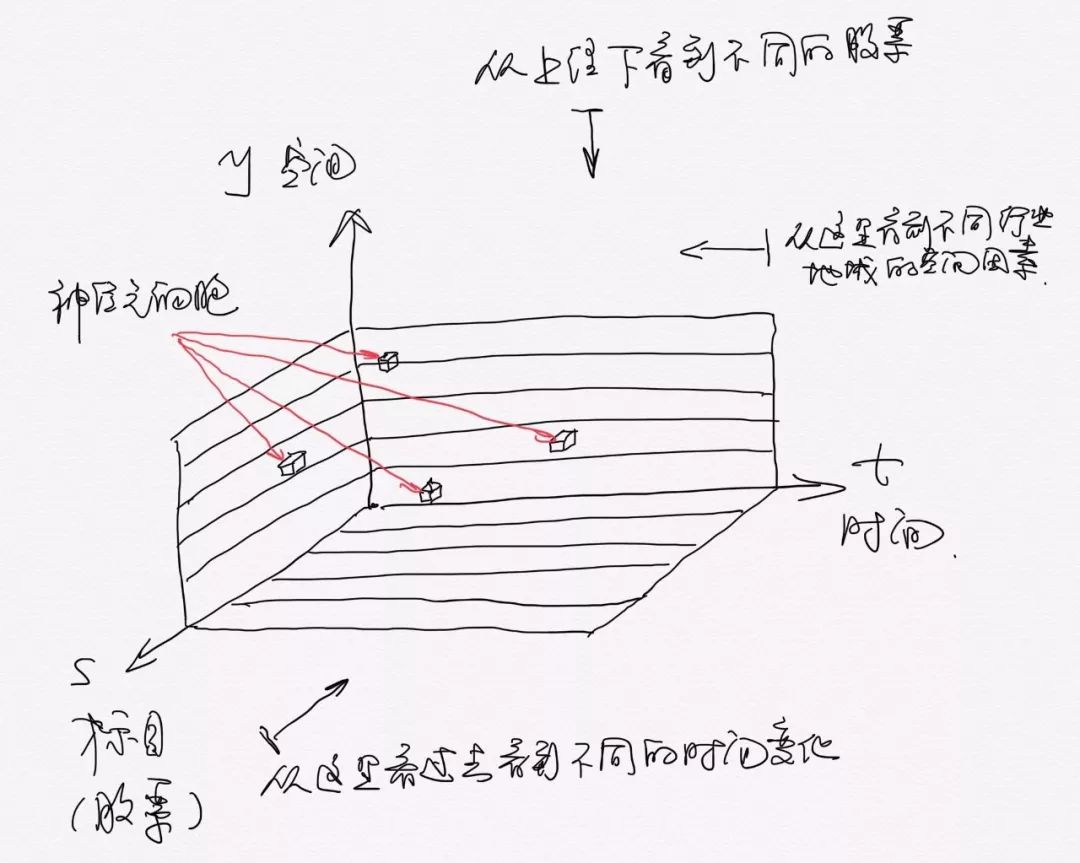 从上往下看到不同的股票
y 空间
从这里看到不同行业
地域的空间因素.
神经元细胞
t
时间.
s
标目
(股票)
从这里看过去看到不同的时间变化